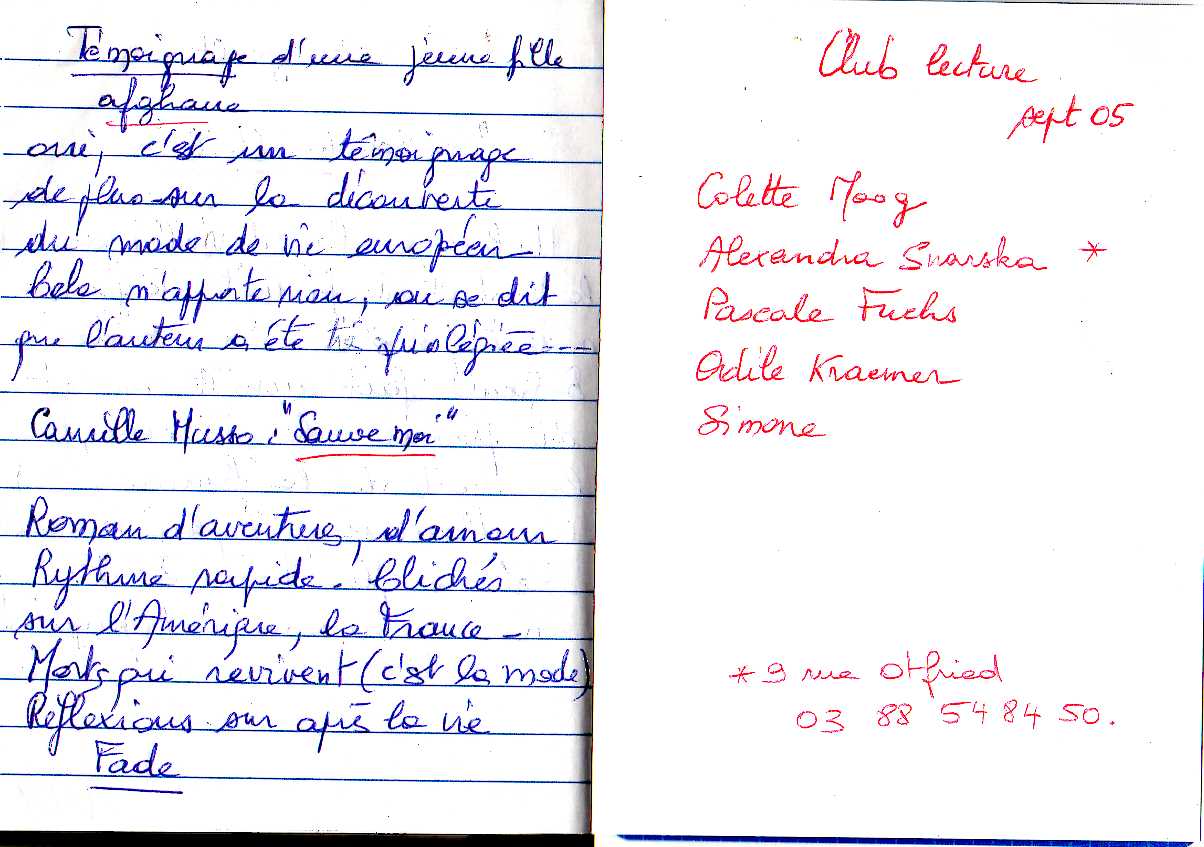 Témoignage d'une jeune fille
afghane
oui, c'est un témoignage
de plus sur la découverte
du mode de vie européen
Cela n'apporte rien, on se dit
que l'auteur a été privilégiée---
Camille Musso : "Sauve moi"
Roman d'aventures, d'amour
Rythme rapide. Clichés
sur l'Amérique, la France -
Morts qui revivent (c'est la mode)
Réflexions sur après la vie
Fade
Club lecture
sept 05
Colette Moog
Alexandra Snarska *
Pascale Fuchs
Odile Kraemer
Simone
* 9 rue Otfried
03 88 54 84 50.